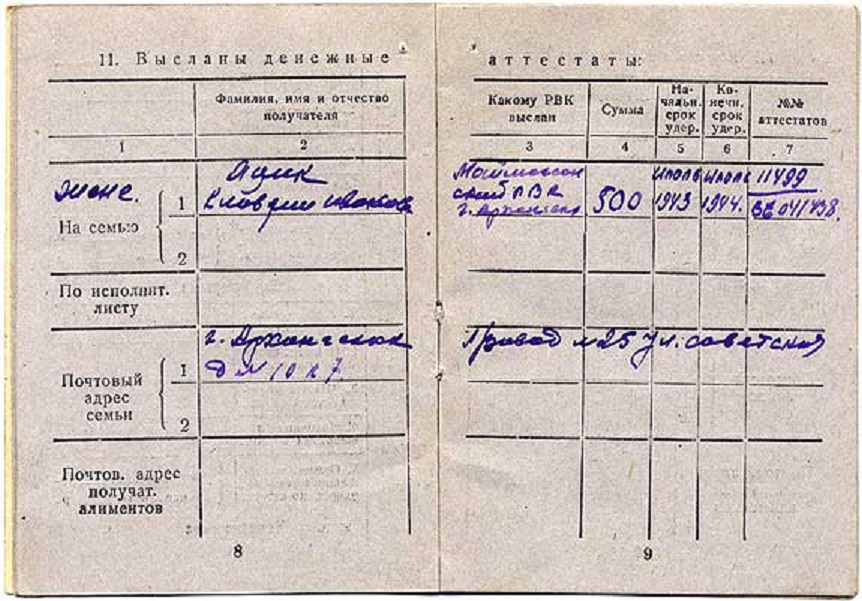 11. Высланы денежные аттестаты:
Фамилия, имя и отчество получателя
Какому РВК выслан
Сумма
На-чальн. срок удер.
Ко-нечн. срок удер.
№№ аттестатов
1 2 3 4 5 6 7
жене.
На семью
1
2
Клавдии Ивановне
РВК
г. Архангельск
500
июль 1943
июль 1944.
11499
041438.
По исполнит. листу
Почтовый адрес семьи
1
2
г. Архангельск
Д № 10 к 7
№ 25 ул. Советская
Почтов. адрес получат. алиментов
8
9